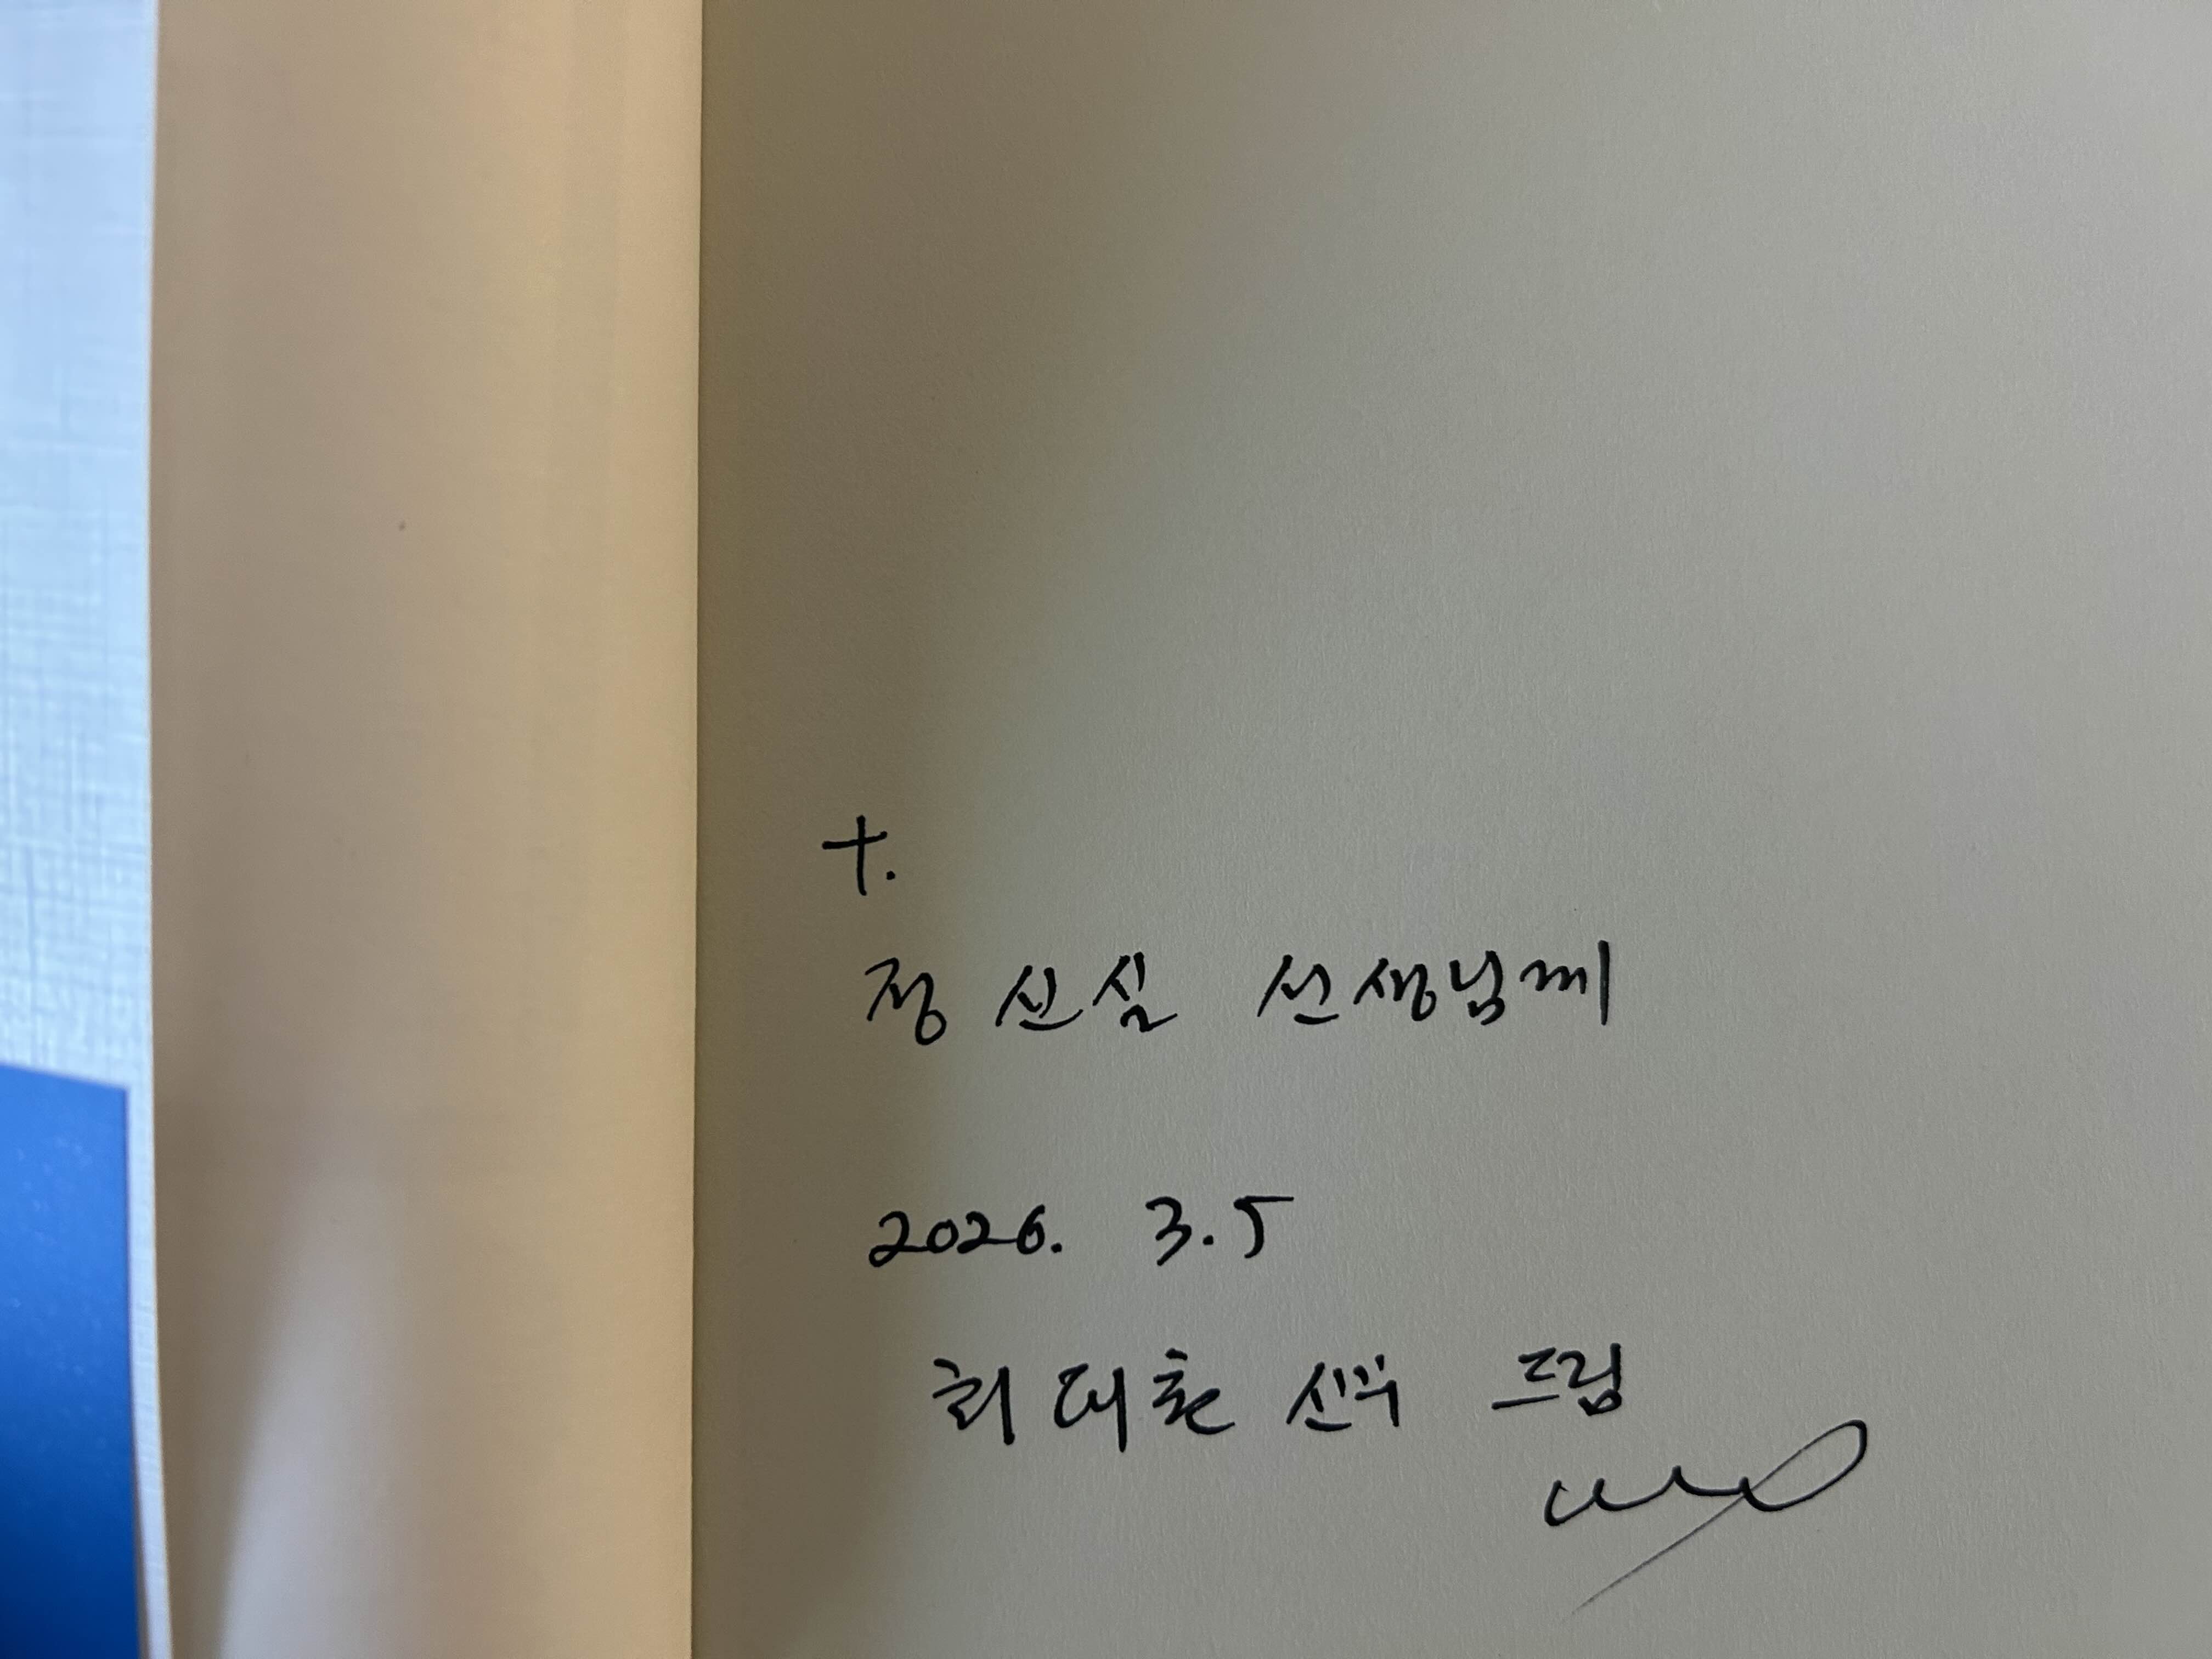 †.
정 신실 선생님께
2026. 3.5
최 대환 신부 드림